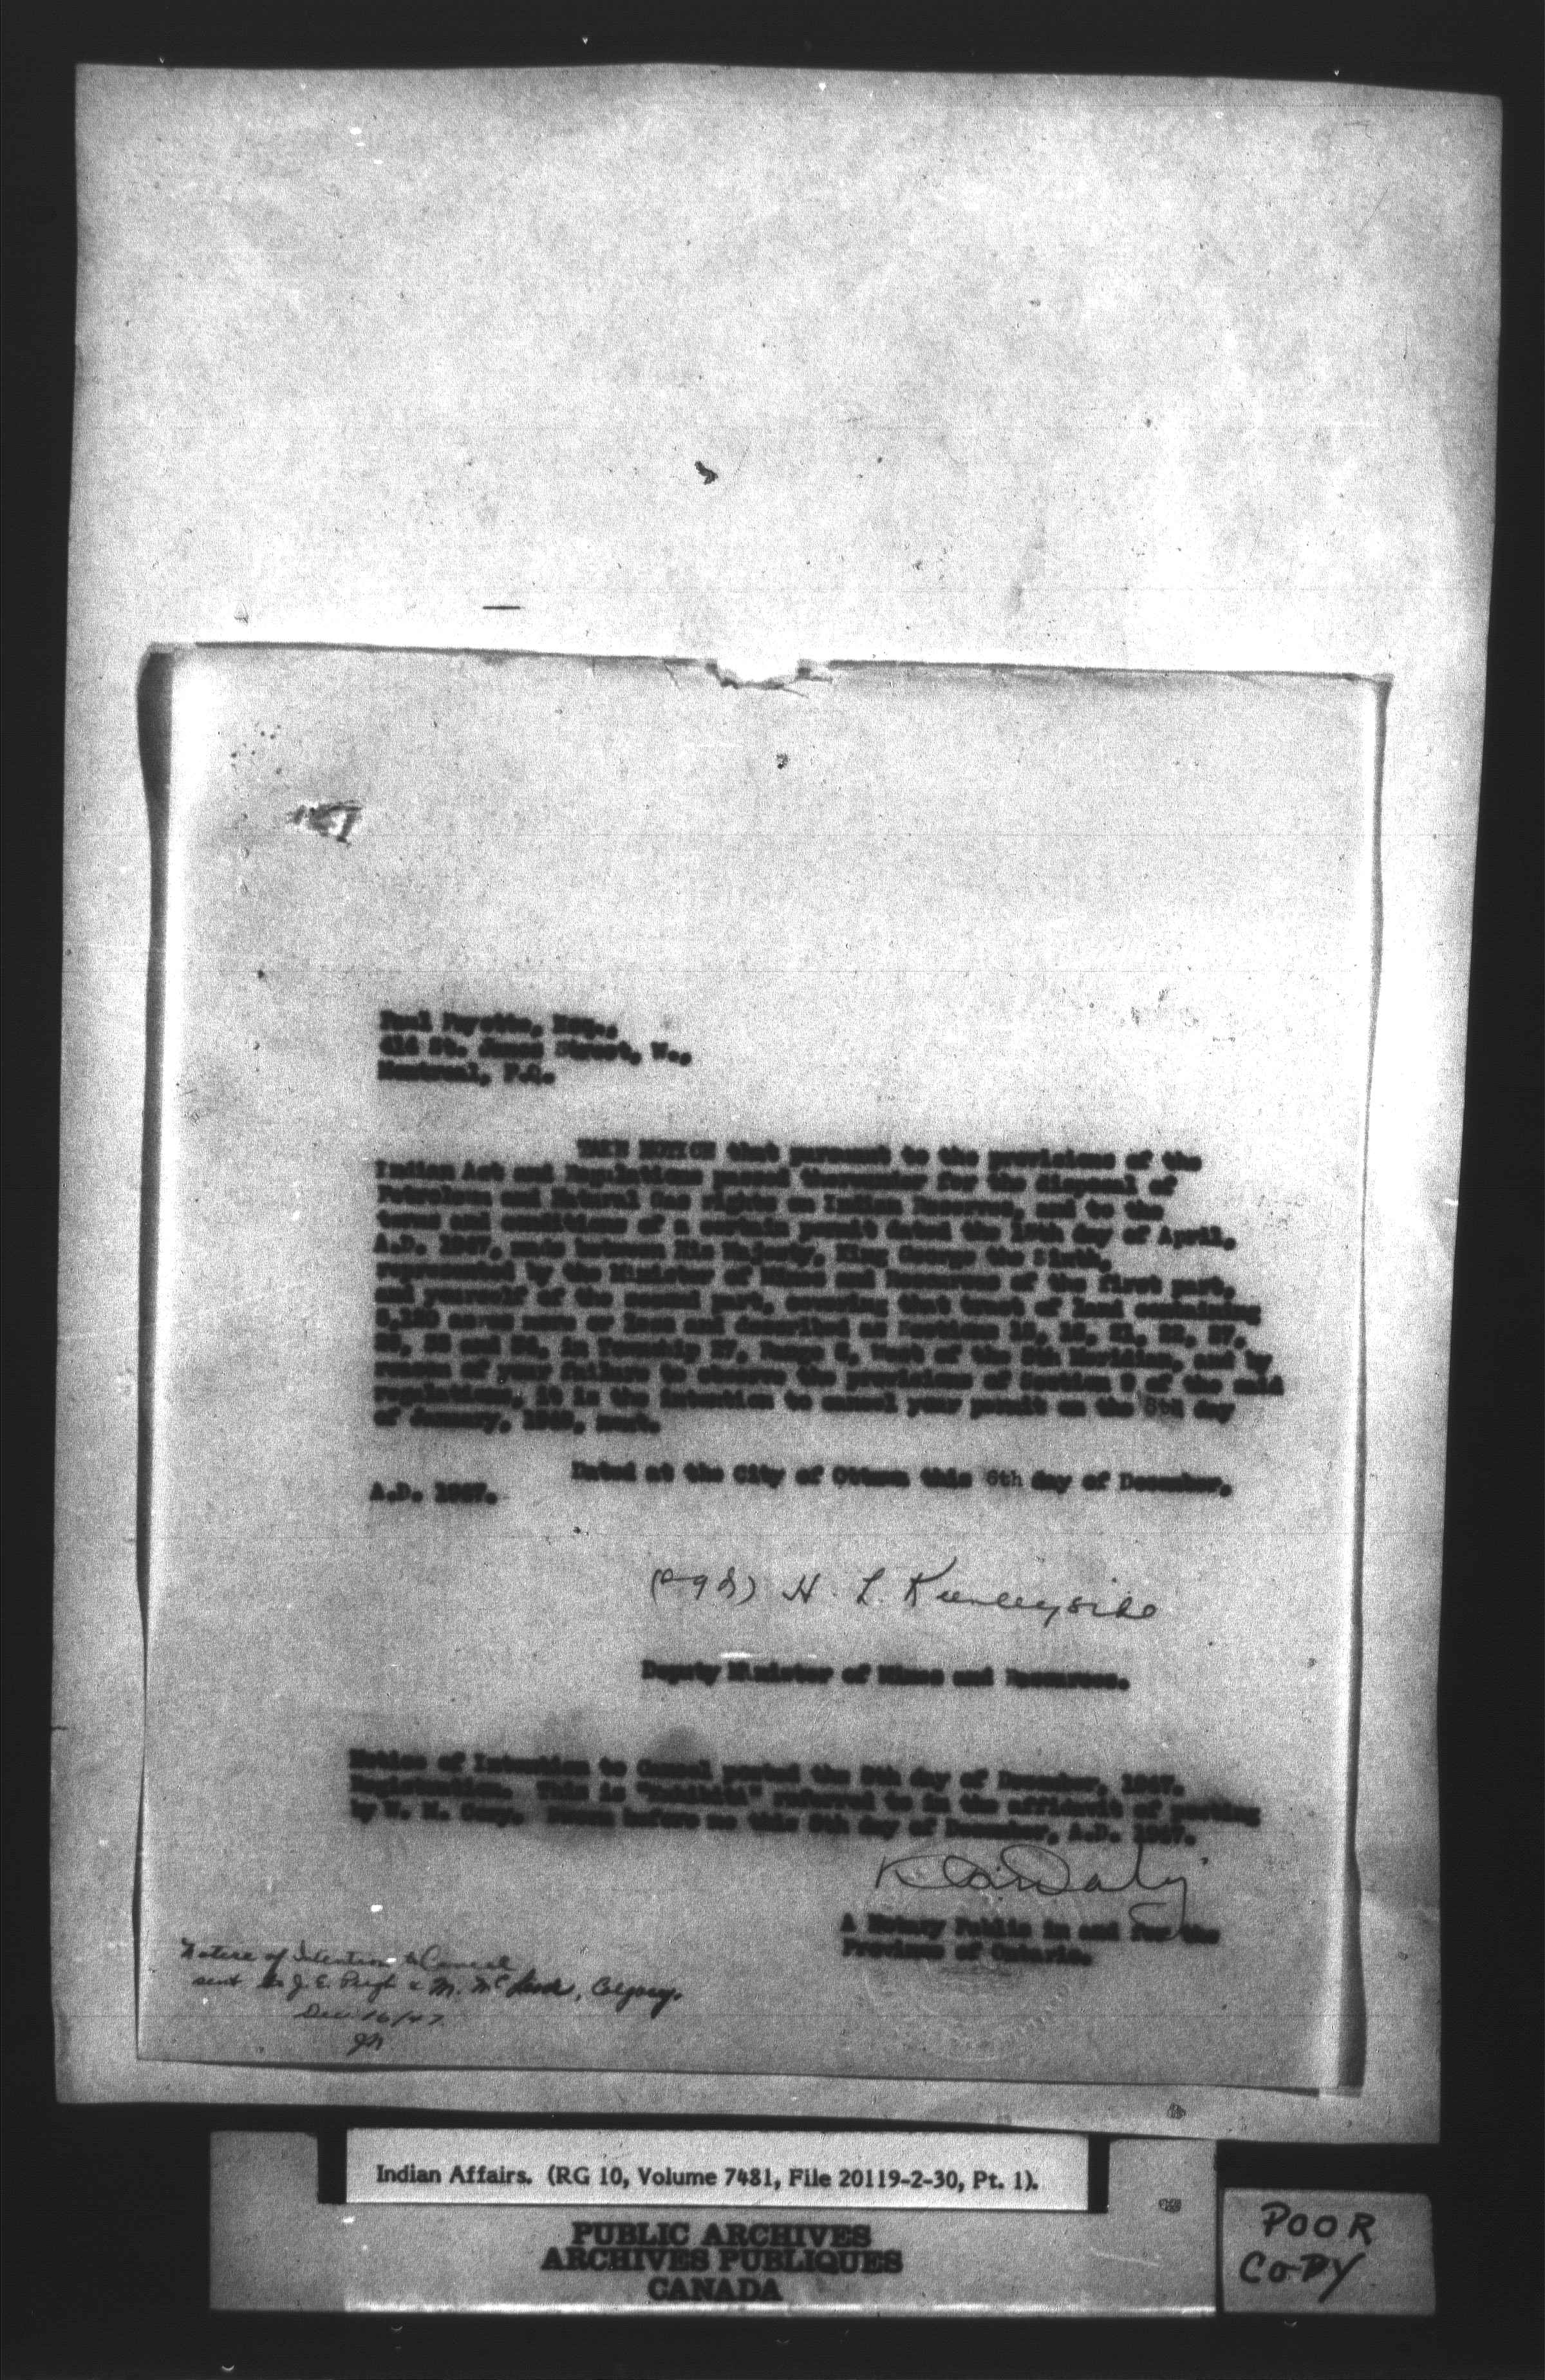 Paul Payette, Esq.,
414 St. James Street, W.,
Montreal, P.Q.
TAKE NOTICE that pursuant to the provisions of the
Indian Act and Regulations passed thereunder for the disposal of
Petroleum and Natural Gas rights on Indian Reserves, and to the
terms and conditions of a certain permit dated the day of April,
A.D. 1947, made between His Majesty, King George the Sixth,
represented by the Minister of Mines and Resources of the first part,
and yourself of the second part, covering that tract of land containing
5,120 acres more or less and described as Sections 21, 22, 27,
in Township 27, Range West of the 5th Meridian, and by
reason of your failure to observe the provisions of Section of the said
regulations, it is the intention to cancel your permit on the 8th day
of January, 1948, next.
Dated at the City of Ottawa this 6th day of December,
A.D. 1947.
(sgd) H. L. Keenleyside
Deputy Minister of Mines and Resources.
Notice of Intention to Cancel posted the day of December, 1947.
Registration. This is "Exhibit referred to in the affidavit of posting
by W. M. Cory. Sworn before me this day of December, A.D. 1947.
Daly
A Notary Public in and for the
Province of Ontario.
Notice of Intention to Cancel
sent to J. E. Pugh & M. Calgary.
Dec. 16/47
Indian Affairs. (RG 10, Volume 7481, File 20119-2-30, Pt. 1).
PUBLIC ARCHIVES
ARCHIVES PUBLIQUES
CANADA
POOR
COPY